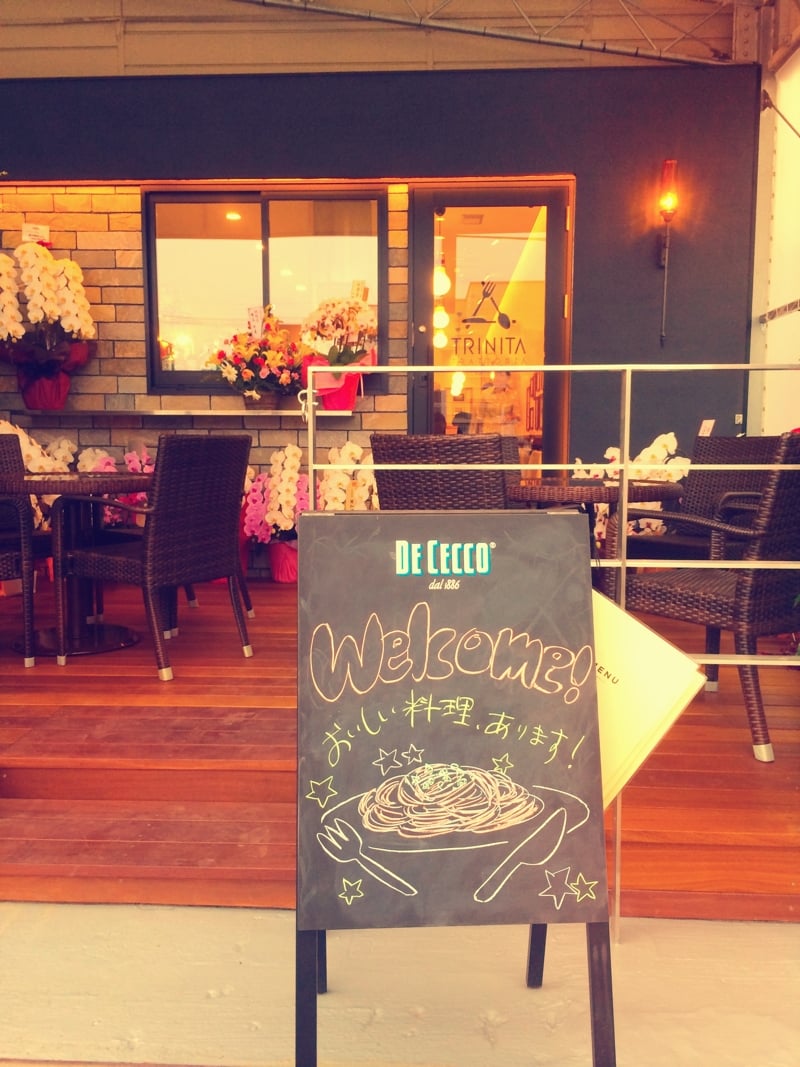 TRINITA
DE CECCO®
dal 1886
Welcome!
おいしい料理、あります!
MENU